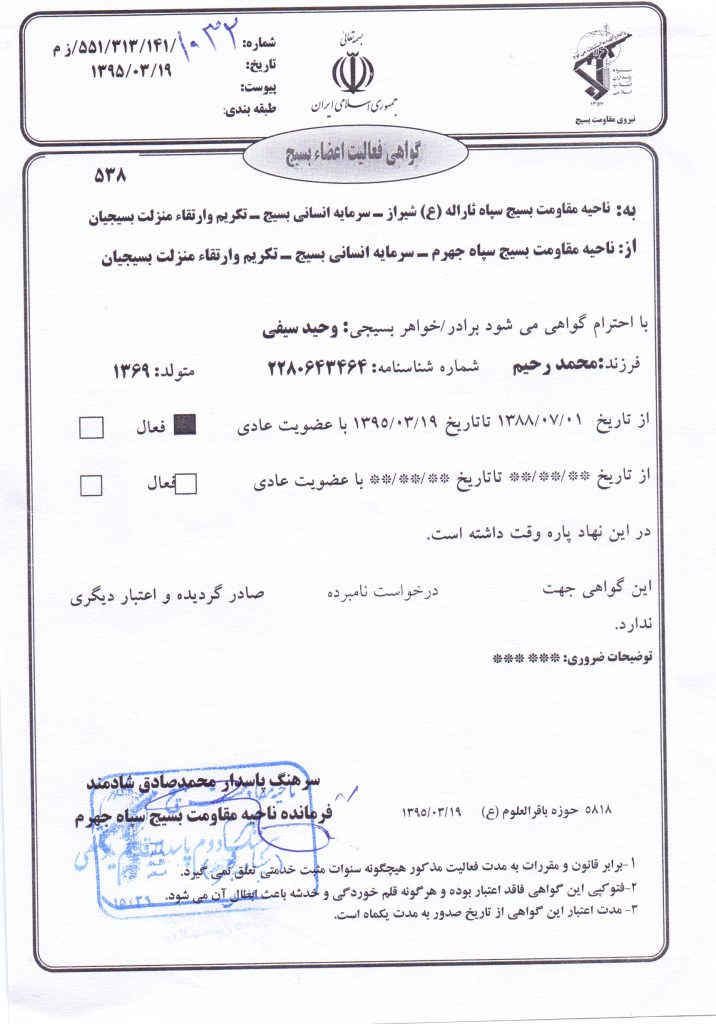 بسمه تعالی
جمهوری اسلامی ایران
شماره: ۱۰۳۲/۵۵۱/۳۱۳/۱۴۱/ز م
تاریخ: ۱۳۹۵/۰۳/۱۹
پیوست:
طبقه بندی:
سپاه
پاسداران
انقلاب
اسلامی
۱۳۵۷
نیروی مقاومت بسیج
گواهی فعالیت اعضاء بسیج
۵۳۸
به: ناحیه مقاومت بسیج سپاه ثاراله (ع) شیراز – سرمایه انسانی بسیج – تکریم وارتقاء منزلت بسیجیان
از: ناحیه مقاومت بسیج سپاه جهرم – سرمایه انسانی بسیج – تکریم وارتقاء منزلت بسیجیان
با احترام گواهی می شود برادر/خواهر بسیجی: وحید سیفی
فرزند:محمد رحیم شماره شناسنامه: ۲۲۸۰۶۴۳۴۶۴ متولد: ۱۳۶۹
از تاریخ ۱۳۸۸/۰۷/۰۱ تاتاریخ ۱۳۹۵/۰۳/۱۹ با عضویت عادی فعال
از تاریخ **/**/** تاتاریخ **/**/** با عضویت عادی فعال
در این نهاد پاره وقت داشته است.
این گواهی جهت درخواست نامبرده صادر گردیده و اعتبار دیگری
ندارد.
توضیحات ضروری: *** ***
سرهنگ پاسدار محمدصادق شادمند
فرمانده ناحیه مقاومت بسیج سپاه جهرم
۵۸۱۸ حوزه باقرالعلوم (ع) ۱۳۹۵/۰۳/۱۹
۱-برابر قانون و مقررات به مدت فعالیت مذکور هیچگونه سنوات مثبت خدمتی تعلق نمی گیرد.
۲-فتوکپی این گواهی فاقد اعتبار بوده و هرگونه قلم خوردگی و خدشه باعث ابطال آن می شود.
۳- مدت اعتبار این گواهی از تاریخ صدور به مدت یکماه است.